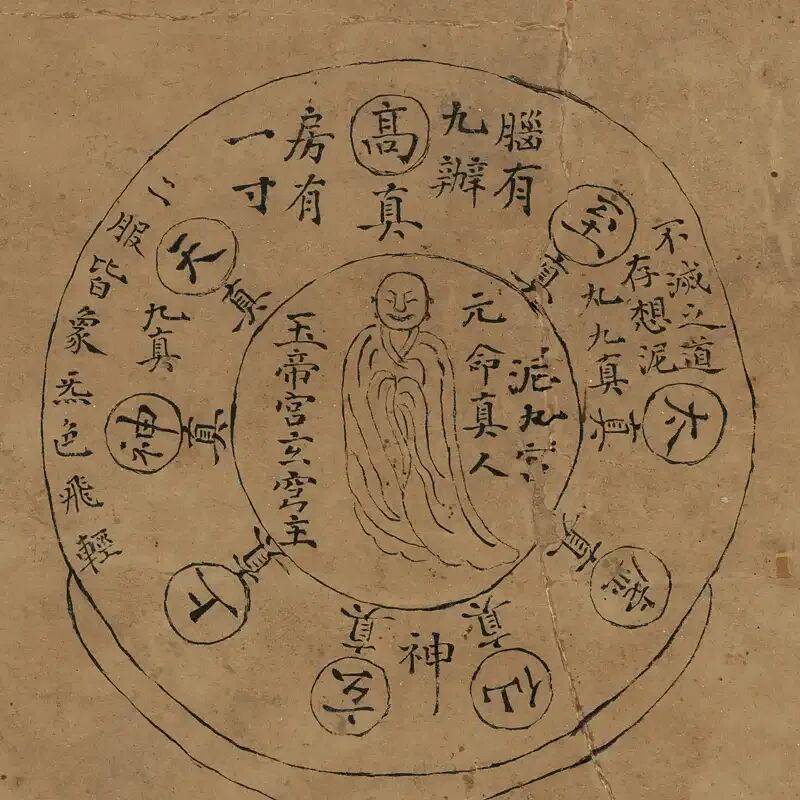 腦有
九辦
高真
房有
一寸
至真
不滅之道
存想泥
丸九真
太真
真
仙真
神
玄真
上真
神真
九真
天真
〻服皆象炁色飛輕
泥丸宮
元命真人
玉帝宮玄穹主